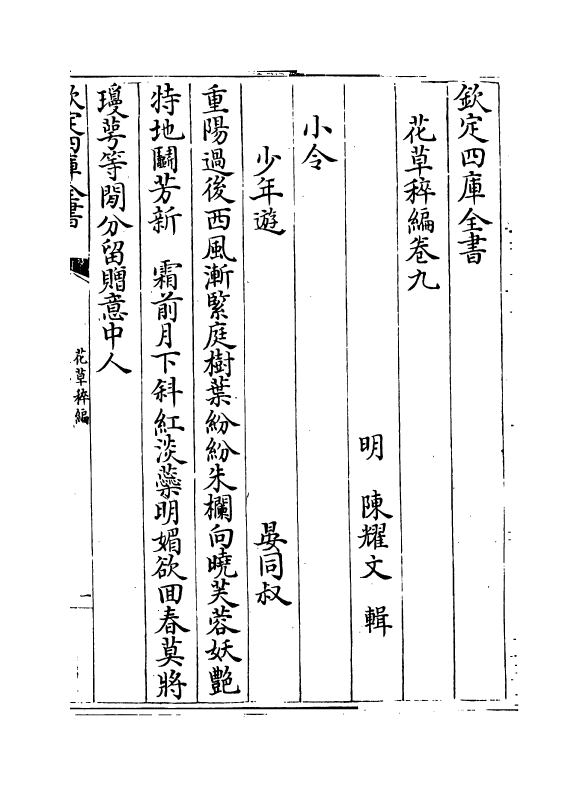 欽定四庫全書
花草稡編卷九
明　陳耀文　輯
小令
少年遊　晏同叔
重陽過後西風漸緊庭樹葉紛紛朱欄向曉芙蓉妖艷
特地鬭芳新　霜前月下斜紅淡蘂明媚欲回春莫將
瓊萼等閒分留贈意中人
欽定四庫全書
花草稡編
一